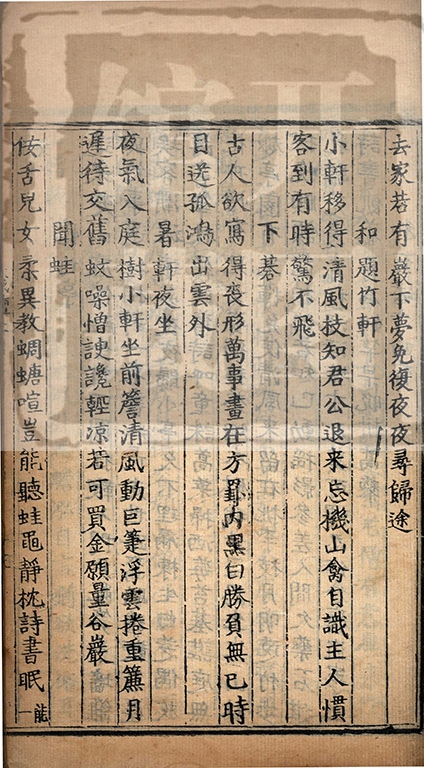 去家若有巖下夢免復夜夜尋歸途
和題竹軒
小軒移得清風枝知君公退來忘機山禽自識主人慣
客到有時驚不飛
下棊
古人欲寓得喪形萬事畫在方罫內黑白勝負無已時
目送孤鴻出雲外
暑軒夜坐
夜氣入庭樹小軒坐前簷清風動巨箑浮雲捲重簾月
遲待交舊蚊噪憎諛讒輕凉若可買金願量谷巖
聞蛙
佞舌兒女柔異教蜩螗喧豈能聽蛙黽靜枕詩書眠一能